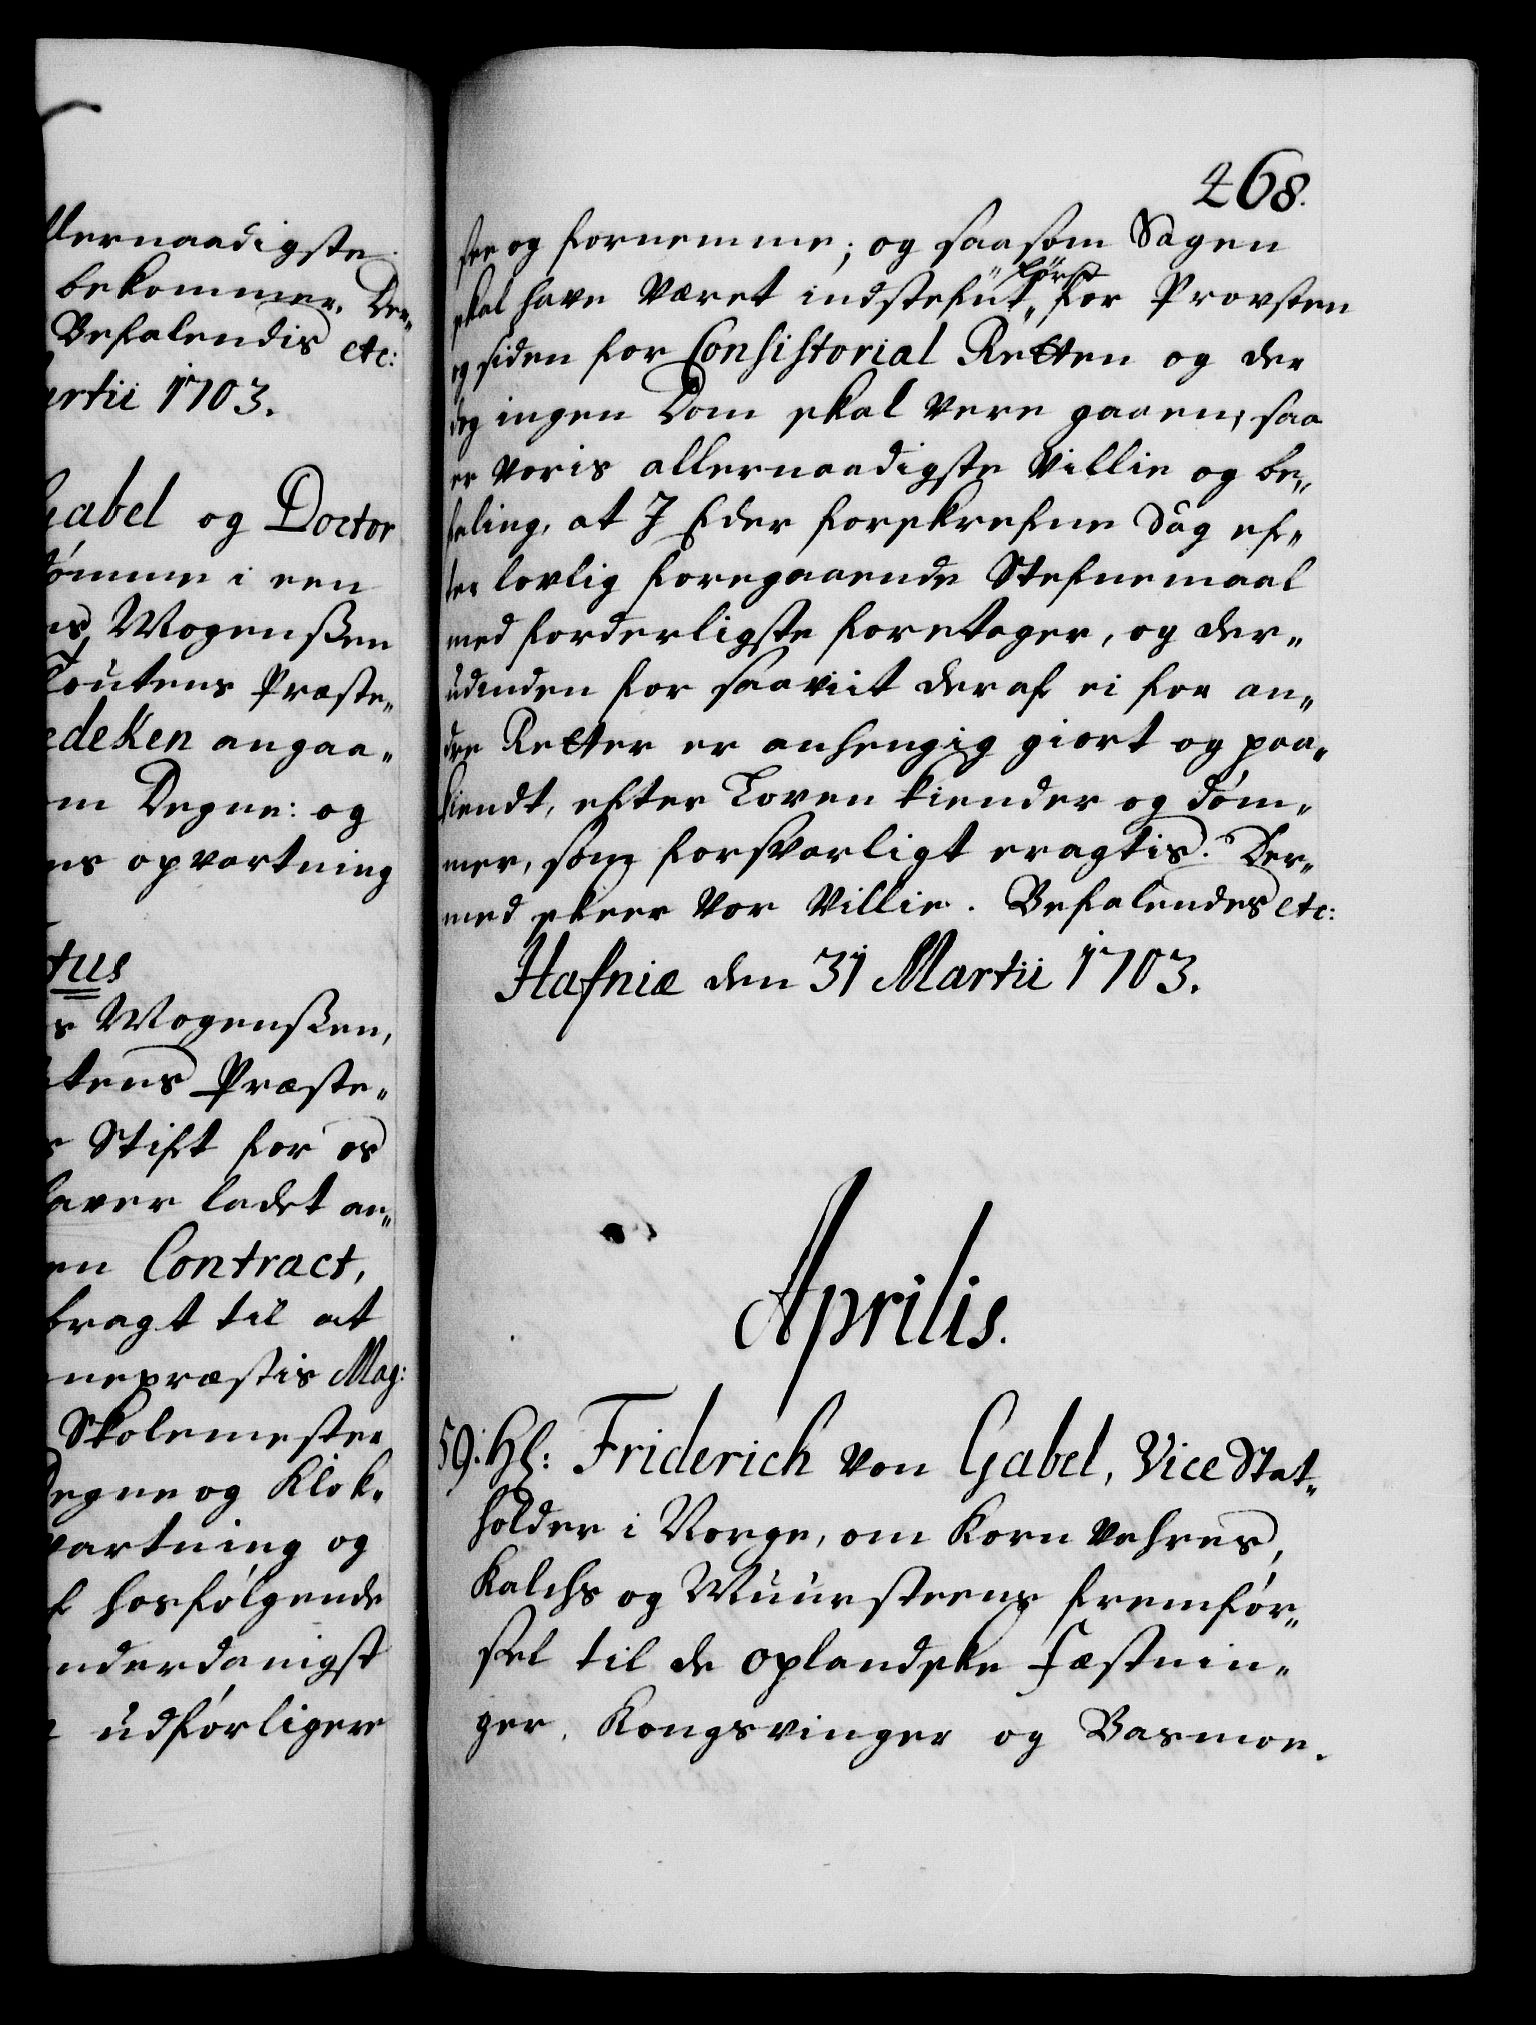 llernaadigste
bekommer. Der„
Befalendis etc:
artii 1703.
Gabel og Doctor
dömme i een
Mogenßen
Toutens Præste„
edeKen angaa„
om Degne: og
ns opvartning
tus
s Mogenßen,
tens Præste„
Stift for os
haver ladet an„
en Contract,
bragt til at
nepræstis Mag:
Skolemester
Degne og Klok„
vartning og
f hosfölgende
nderdanigst
udförligere
268.
see og fornemme; og saasom Sagen
skal have været indstefnt „först„ for Provsten
og siden for Consistorial Retten og der
dog ingen Dom skal vere gaaen, saa
er voris allernaadigste Villie og be„
faling, at I Eder forskrefne Sag ef„
ter lovlig foregaaende Stefnemaal
med forderligste foretager, og der„
udinden for saaviit deraf ei for an„
dre Retter er anhengig giort og paa„
kiendt, efter Loven kiender og döm„
mer, som forsvarligt eragtis. Der„
med skeer Vor Villie. Befalendes etc:
Hafniæ den 31 Martii 1703.
Aprilis.
59. Hl: Friderich von Gabel, Vice Stat„
holder i Norge, om Korn Vahres,
Kalchs og Muursteens fremför„
sel til de Oplandske Fæstnin„
ger, Kongsvinger og Basmoe.